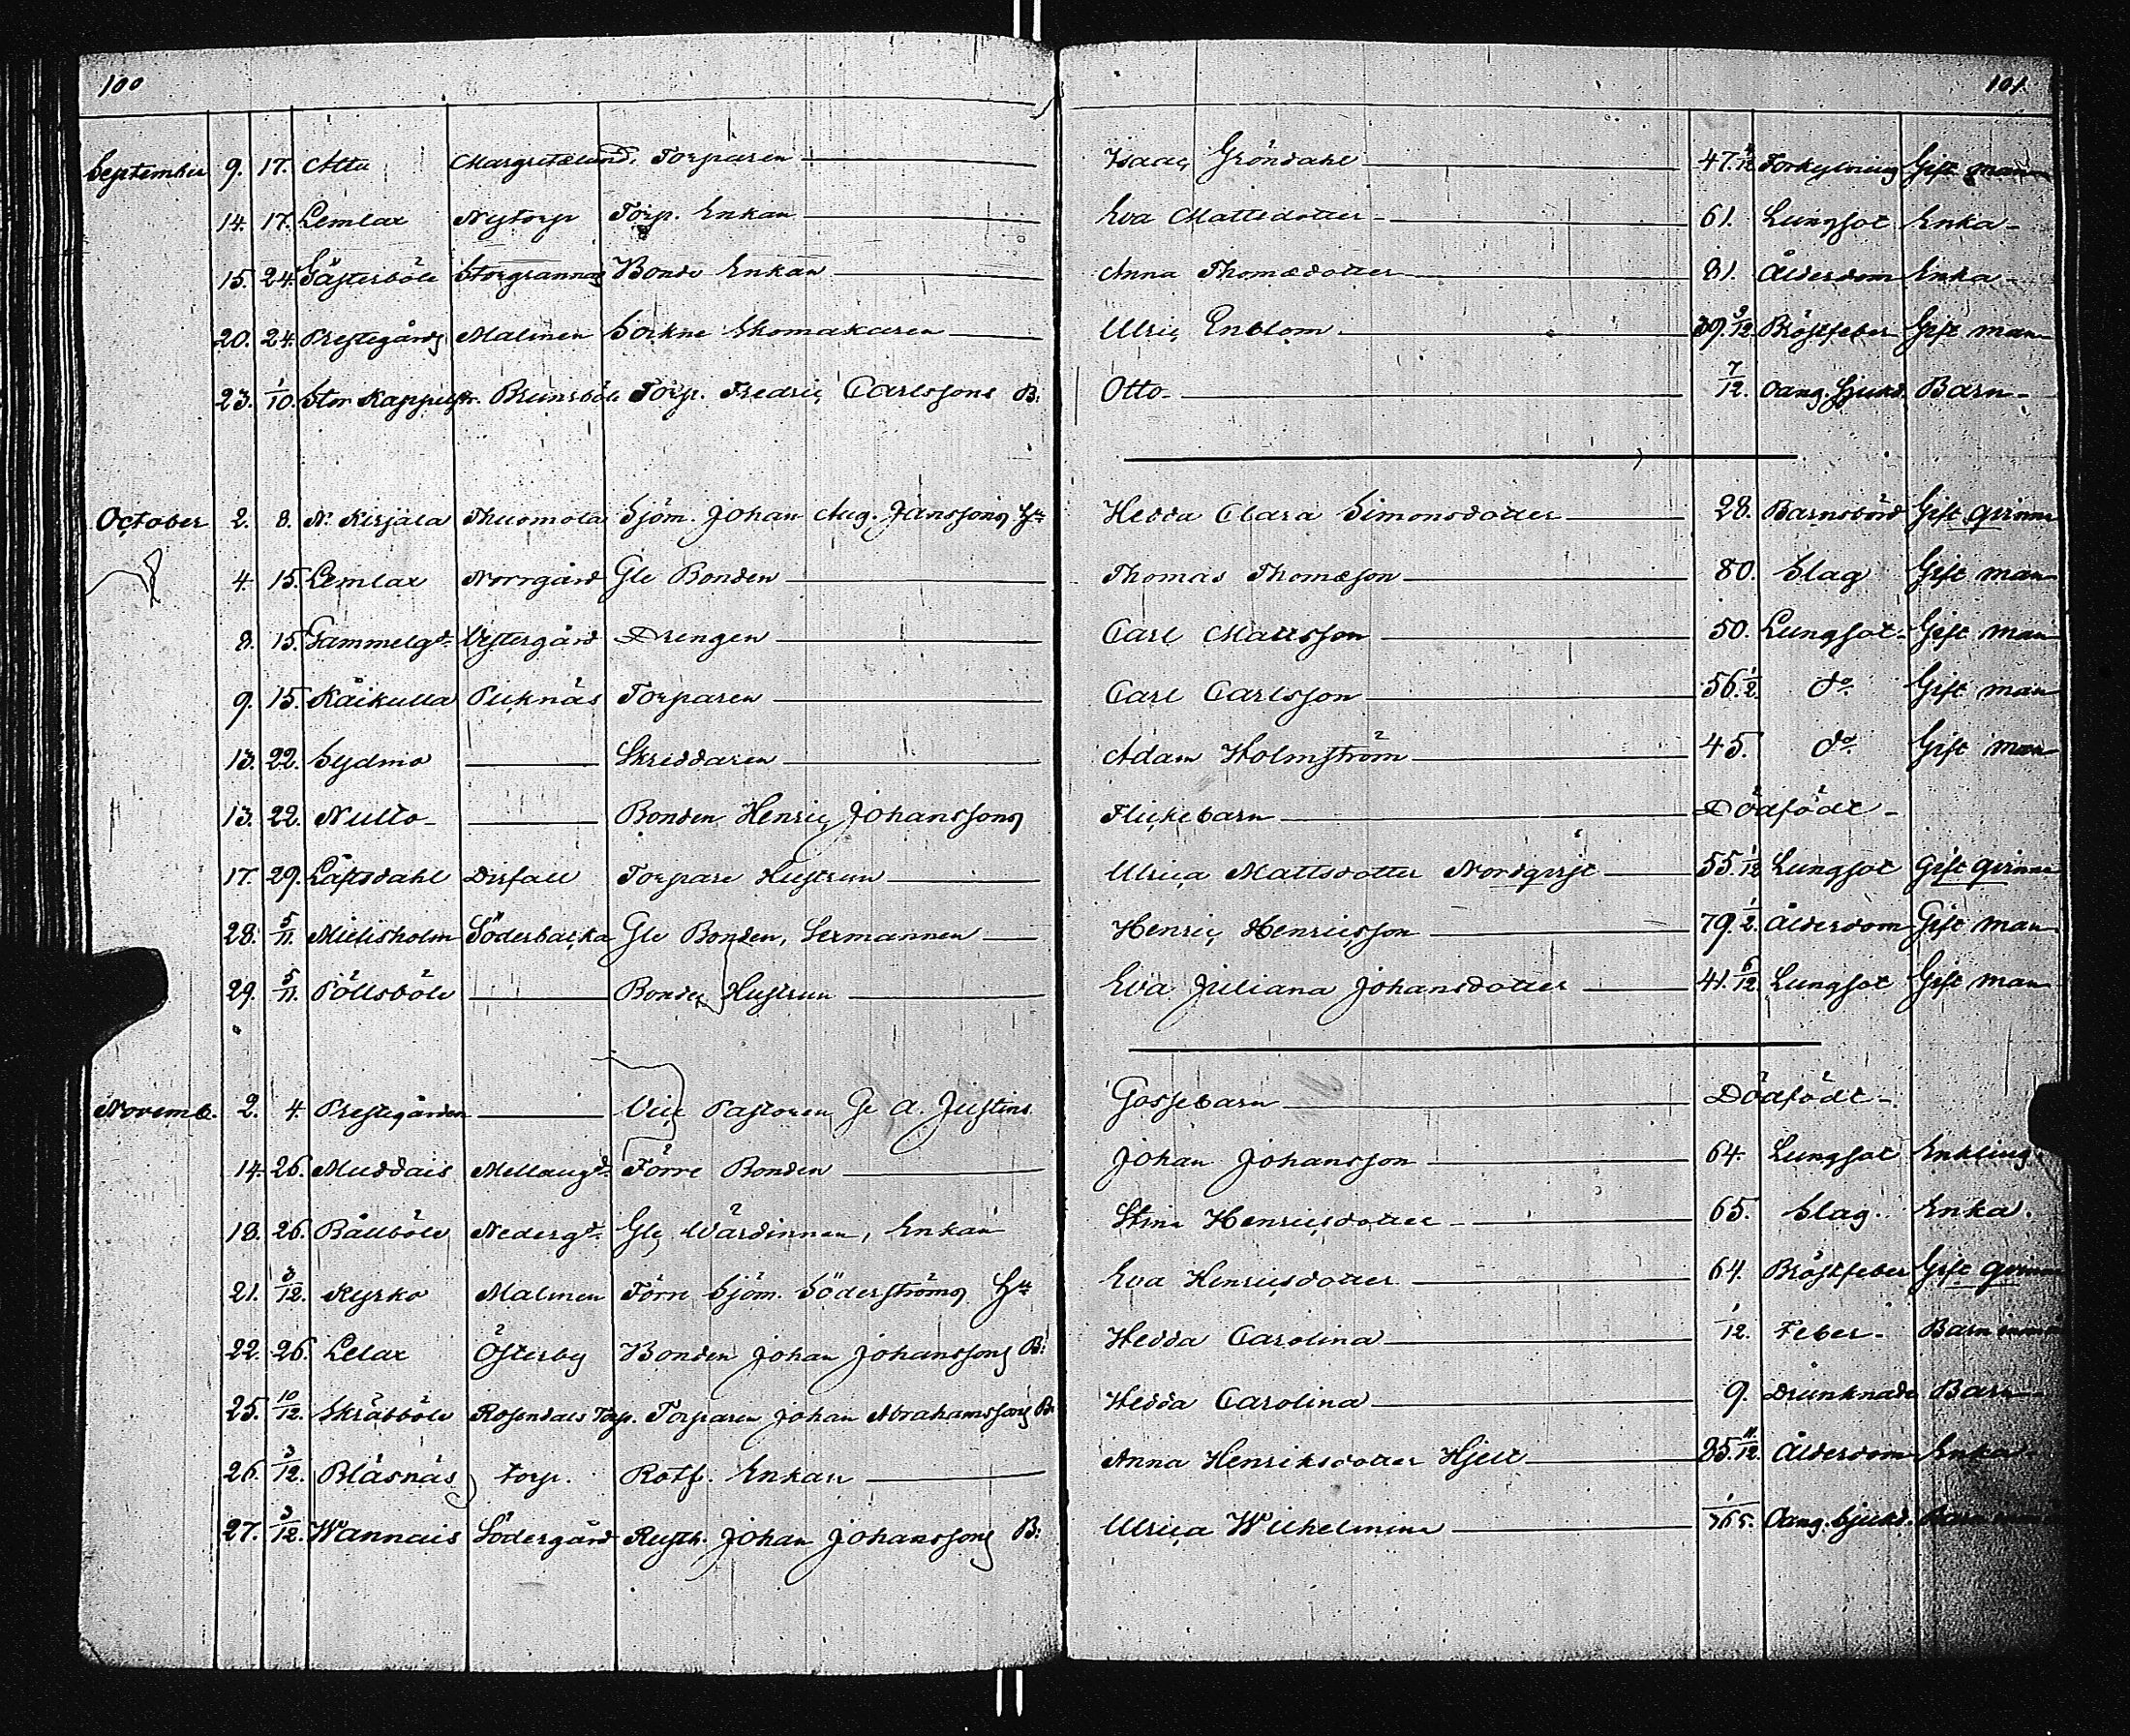 100 101
September 9. 17. Attu Margretelund. Torparen Isaac Gröndahl 47. Förkylning Gift man
14. 17. Lemlax Nytorp Torp. Enkan Eva Mattsdotter 61. Lungsot Enka
15. 24. Storgrannas Bonde Enkan Anna Thomædotter 81. Ålderdom Enka
20. 24. Prestegårds Malmen Sockne Skomakaren Ulric Enblom 9/12. Bröstfeber Gift man
23. 1/10. Stor Torp. Fredric Carlssons B: Otto 7/12. Oang. Sjukd. Barn
October 2. 8. N. Kirjala Thuomola Sjöm. Johan Aug. Janssons H:u Hedda Clara Simonsdotter 28. Barnsbörd Gift qvinna
4. 15. Lemlax Norrgård Gle Bonden Thomas Thomæson 80. Slag Gift man
8. 15. Gammelgd. Vestergård Drengen Carl Mattsson 50. Lungsot Gift man
9. 15. Kåikulla Piuknäs Torparen Carl Carlsson 56. 1/2. do Gift man
13. 22. Sydmo Skreddaren Adam Holmström 45. do Gift man
13. 22. Nulto Bonden Henric Johanssons Flickebarn Dödfödt
17. 29. Läpsdahl Torpare Hustrun Ulrica Mattsdotter Nordqvist 55. 1/12 Lungsot Gift qvinna
28. 5/11. Mielisholm Söderbacka Gle Bonden, Sexmannen Henric Henricsson 79. 1/2. Ålderdom Gift man
29. 5/11. Pöllsböle Bonde Hustrun Eva Juliana Johansdotter 41. 6/12. Lungsot Gift man
Novemb. 2. 4. Prestgården Vice Pastoren G. A. Justins Gossebarn Dödfödt
14. 26. Muddais Mellangd. Förre Bonden Johan Johansson 64. Lungsot Enkling
18. 26. Bållböle Nedergd. Gle Wärdinnan, Enkan Stina Henricsdotter 65. Slag. Enka.
21. 3/12. Kyrko Malmen Förre Sjöm. Söderströms H:u Eva Henricsdotter 64. Bröstfeber Gift qvinna
22. 26. Lelax Österby Bonden Johan Johanssons B: Hedda Carolina 1/12. Feber Barn
25. 10/12. Skräbböle Rosendals Torp. Torparen Johan Abrahamssons B: Hedda Carolina 9. Drunknade Barn
26. 3/12. Bläsnäs torp. Rotf. Enkan Anna Henriksdotter Hjelt 85. 11/12. Ålderdom Enka
27. 3/12. Wannais Södergård Rusth. Johan Johanssons B: Ulrica Wilhelmina 1/365. Oang. Sjukd. Barn